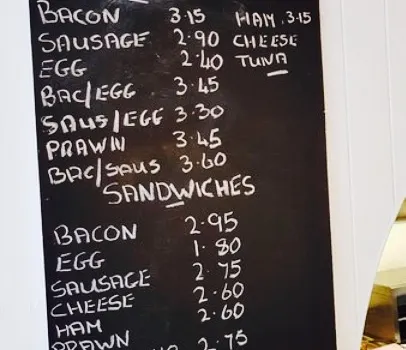 BACON 3.15 HAM. 3.15
SAUSAGE 2.90 CHEESE
EGG 2.40 TUNA
BAC/EGG 3.45
SAUS/EGG 3.30
PRAWN 3.45
BAC/SAUS 3.60
SANDWICHES
BACON 2.95
EGG 1.80
SAUSAGE 2.75
CHEESE 2.60
HAM 2.60
PRAWN 2.75